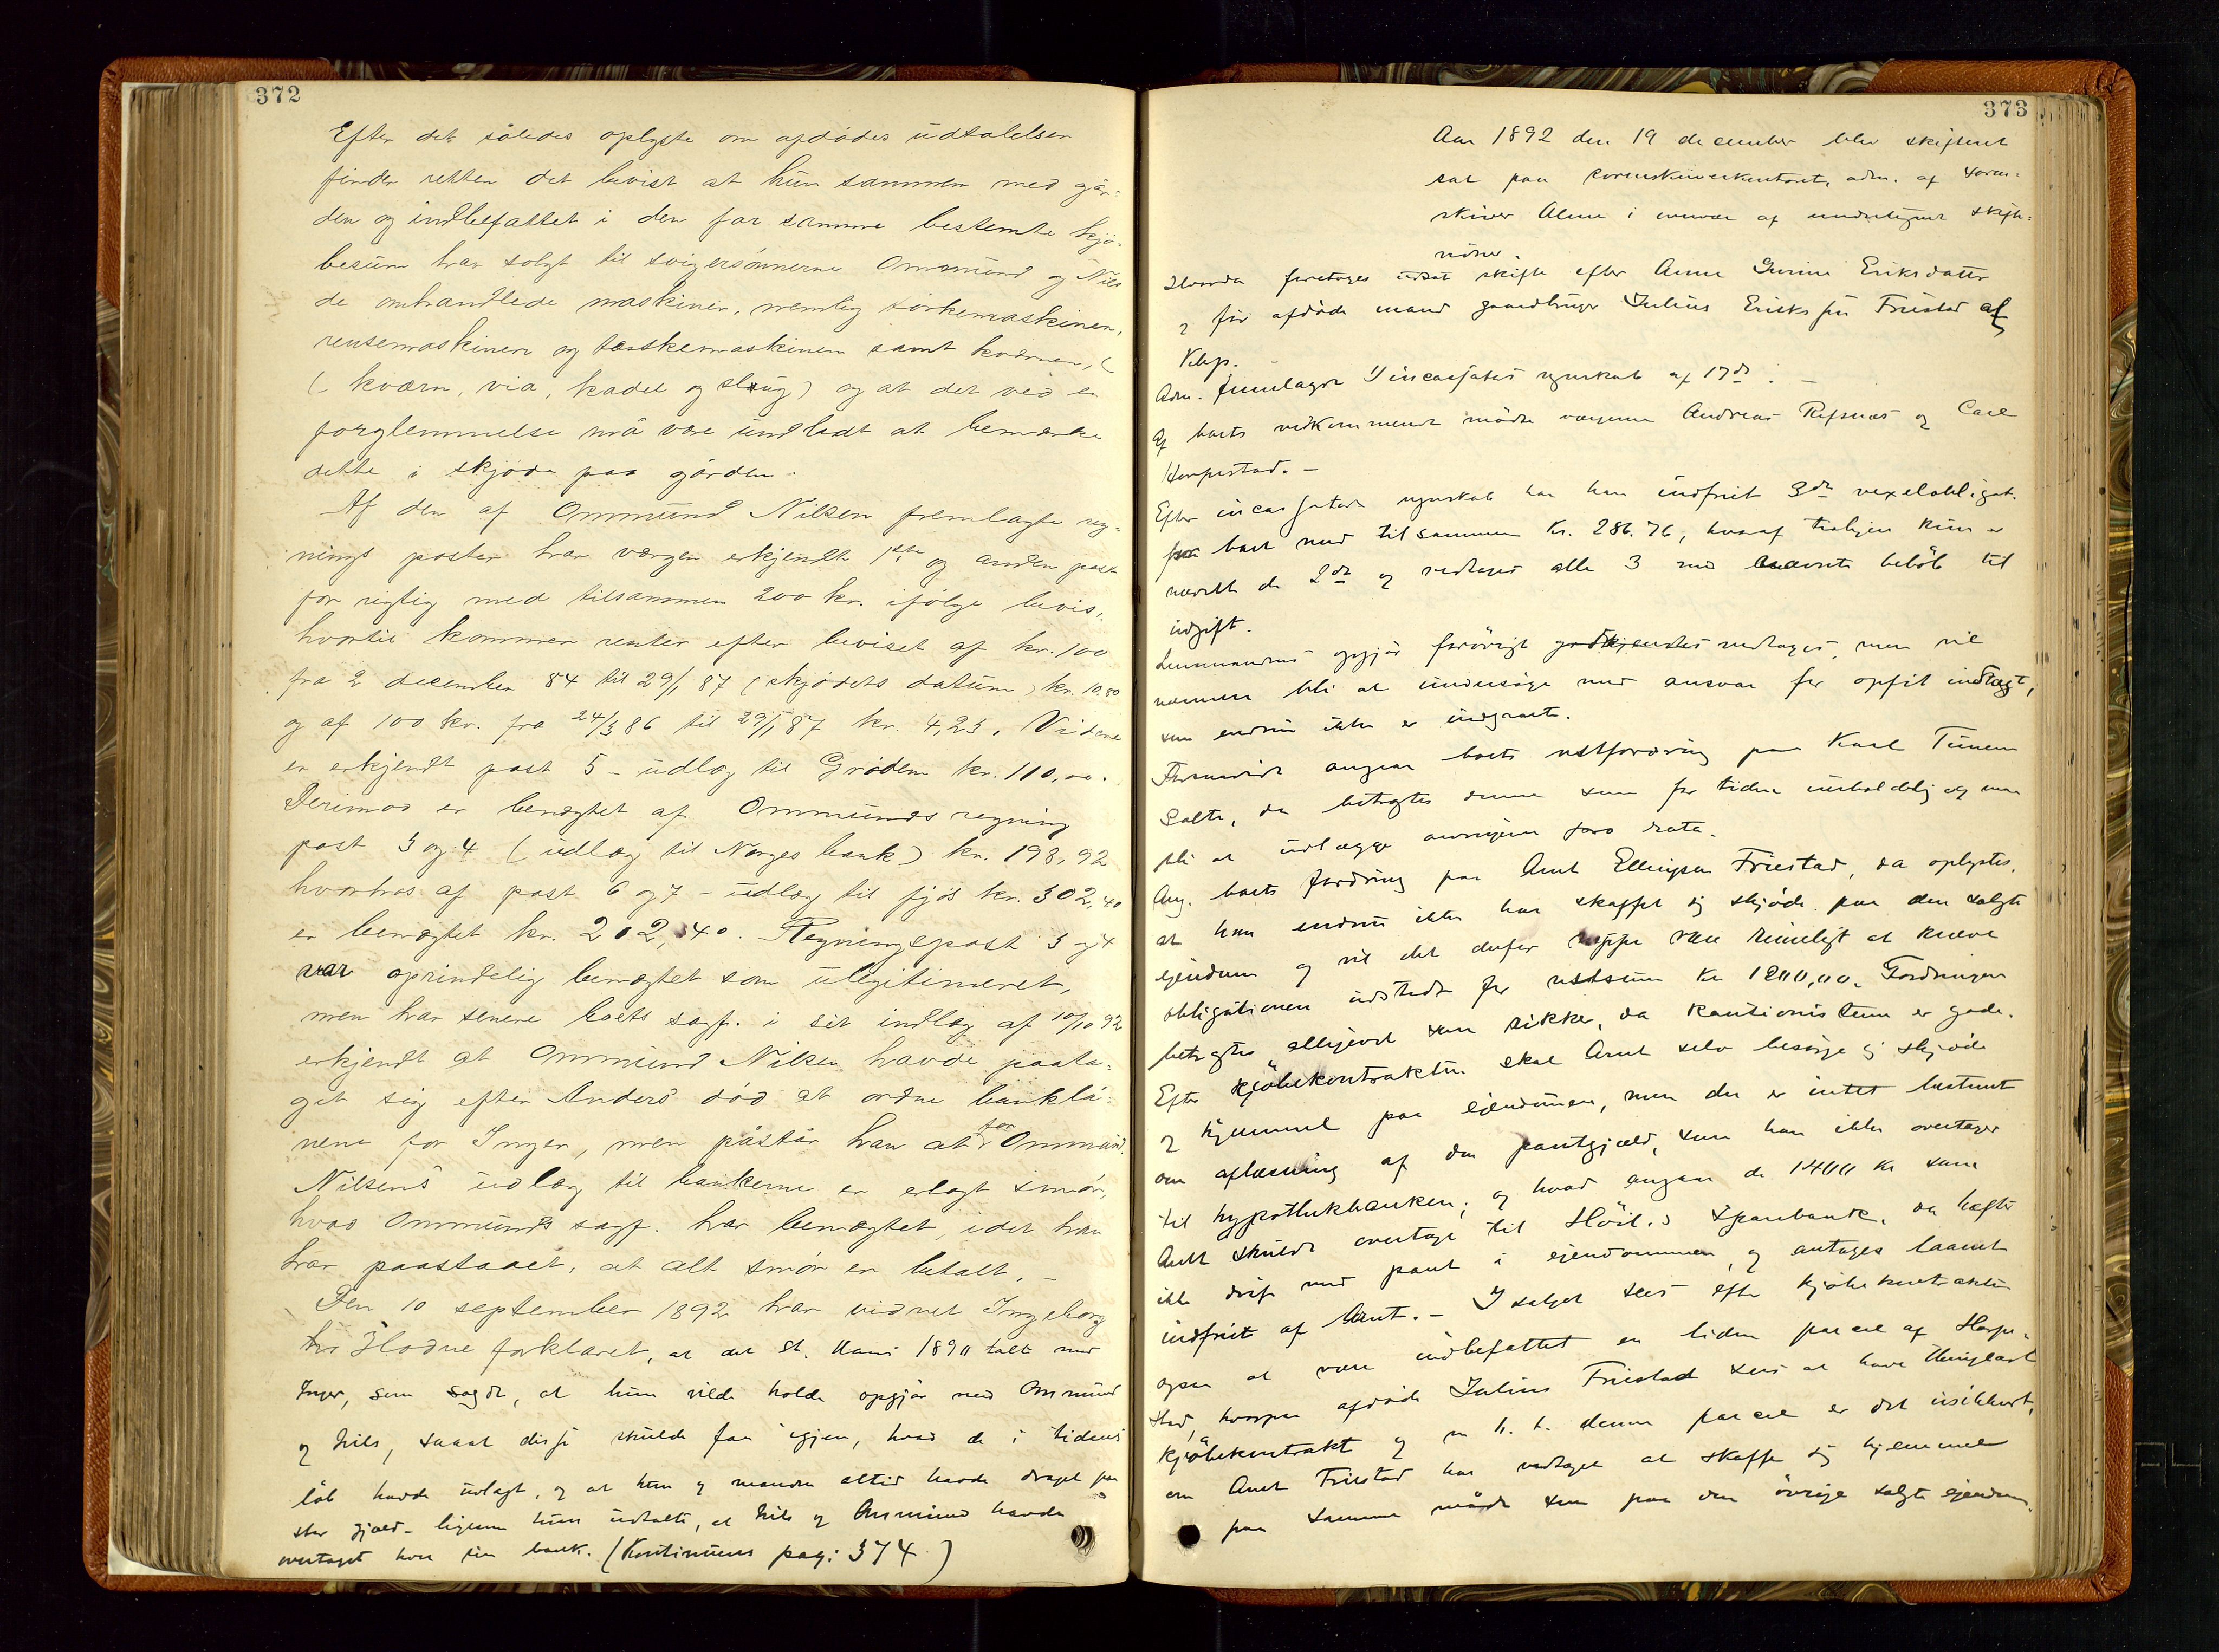 372
Efter det således oplyste om afdødes udtalelser
finder retten det bevist at hun sammen med går-
den og indbefattet i den for samme bestemte kjø-
besum har solgt til svigersønnerne Ommund og Nils
de omhandlede maskiner, nemlig tørkemaskinen,
rensemaskinen og tærskemaskinen samt kværnen, (
( kværn, via, kadel og slug) og at det ved en
forglemmelse må være undladt at bemærke
dette i skjøde paa gården.
Af den af Ommund Nilsen fremlagte reg-
nings poster har værgen erkjendt 1ste og anden post
for rigtig med tilsammen 200 kr. ifølge bevis,
hvortil kommer renter efter beviset af kr. 100
fra 2 december 84 til 29/1 87 (skjødets datum) kr. 10,80
og af 100 kr. fra 24/3 86 til 29/1 87 kr. 4,23. Videre
er erkjendt post 5 - udlæg til Grøden kr. 110,00.
Derimod er benægtet af Ommunds regning
post 3 og 4 (udlæg til Norges bank) kr. 198,92
hvorhos af post 6 og 7 - udlæg til fjøs kr. 302,40
er benægtet kr. 202,40. Regningspost 3 og 4
var oprindelig benægtet som ulegitimeret,
men har senere boets sagf. i sit indlæg af 10/10 92
erkjendt at Ommund Nilsen havde paata-
get sig efter Anders død at ordne banklå-
nene for Inger, men påstår han at for Ommund
Nilsens udlæg til bankerne er erlagt smør,
hvad Ommunds sagf. har benægtet, idet han
har paastaaet, at alt smør er betalt. -
Den 10 september 1892 har vidnet Ingeborg
Hodne forklaret, at det St. Hans 1890 talt med
Inger, som sagde, at hun vilde holde opgjør med Ommund
og Nils, saaat disse skulde faa igjen, hvad de i tidens
løb havde udlagt, og at hun og manden altid havde draget paa
stor gjæld - ligesom hun udtalte, at Nils og Ommund havde
overtaget hver sin bank. (Kontinueres pag: 374)
373
Aar 1892 den 19 december blev skifteret
sat paa sorenskriverkontoret, adm. af soren-
skriver Alme i overvær af undertegnede skifte-
vidner.
Hvorda foretoges udsat skifte efter Anne Gurine Eriksdatter
og før afdøde mand gaardbruger Julius Eriksen Friestad af
Klep. -
Adm. fremlagde incassators regnskab af 17 ds. -
Af boets vedkommende mødte værgerne Andreas Refsnæs og Carl
Horpestad. -
Efter incassators regnskab har han indfriet 3de vexelobligat.
fra boet med tilsammen Kr. 286.76, hvoraf tidligere kun er
nævnt de 2de og vedtages alle 3 med nævnte beløb til
udgift.
Lensmandens opgjør forøvrigt godkjendes vedtages, men vil
namnene bli at undersøge med ansvar for opført indtægt,
som endnu ikke er indgaaet.
Forsaavidt angaar boets restfordring paa Karl Tunem
Salte, da betragtes denne som for tiden uerholdelig og maa
bli at udlægge arvingerne pro rata.
Ang. boets fordring paa Arnt Ellingsen Friestad, da oplystes,
at han endnu ikke har skaffet sig skjøde paa den solgte
ejendom og vil det derfor neppe være rimeligt at kræve
obligationen udstedt for restsum Kr 1200,00. Fordringen
betragtes alligevel som sikker, da kautionisterne er gode.
Efter kjøbekontrakten skal Arnt selv besørge sig skjøde
og hjemmel paa ejendommen, men der er intet bestemt
om aflæsning af den pantgjæld, som han ikke overtager
til hypothekbanken; og hvad angaar de 1400 Kr som
Arnt skulde overtage til Høil.s Sparebank, da hæfter
ikke disse med pant i ejendommen og antages laanet
indfriet af Arnt. - I salget sees efter kjøbekontrakten
ogsaa at være indbefattet en liden parcel af Horpe-
stad, hvorpaa afdøde Julius Friestad sees at have thinglæst
kjøbekontrakt og m. h. t. denne parcel er det usikkert,
om Arnt Friestad har vedtaget at skaffe sig hjemmel
paa samme måde som paa den øvrige solgte ejendom.